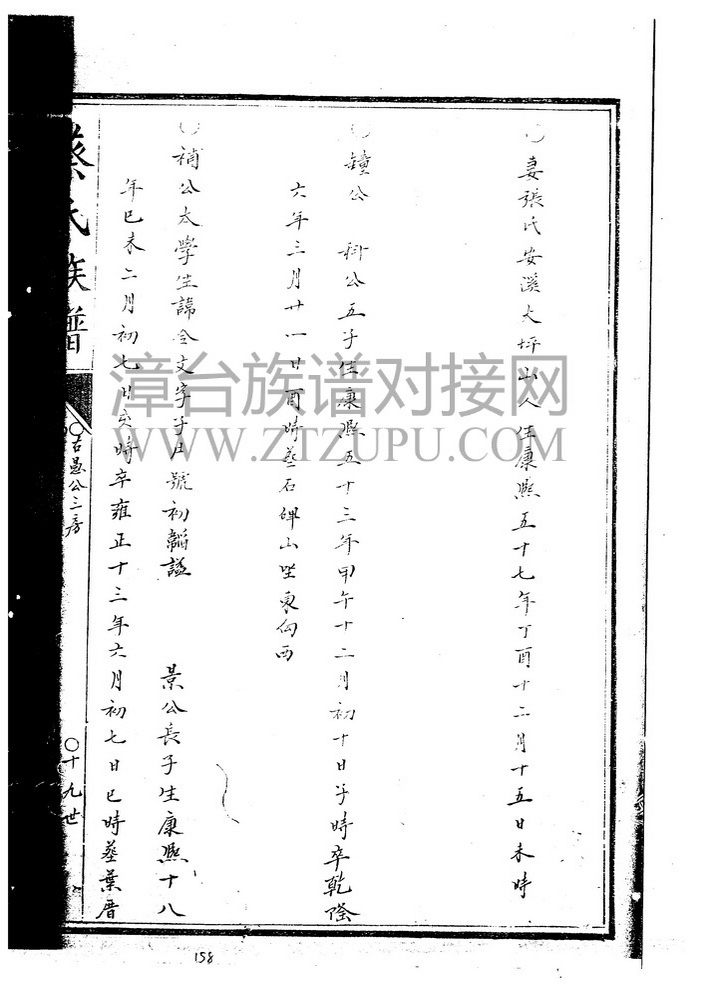 ○ 妻張氏安溪大坪山人生康熙五十七年丁酉十二月十五日未時
○ 鐘公 科公五子生康熙五十三年甲午十二月初十日子時卒乾隆
六年三月廿一日酉時葬石碑山坐東向西
○ 補公太學生諱全文字子 號初 謚 景公長子生康熙十八
年巳未二月初七日亥時卒雍正十三年六月初七日巳時葬葉厝
蔡氏族譜
○古愚公三房
○十九世
漳台族谱对接网
WWW.ZTZUPU.COM
158